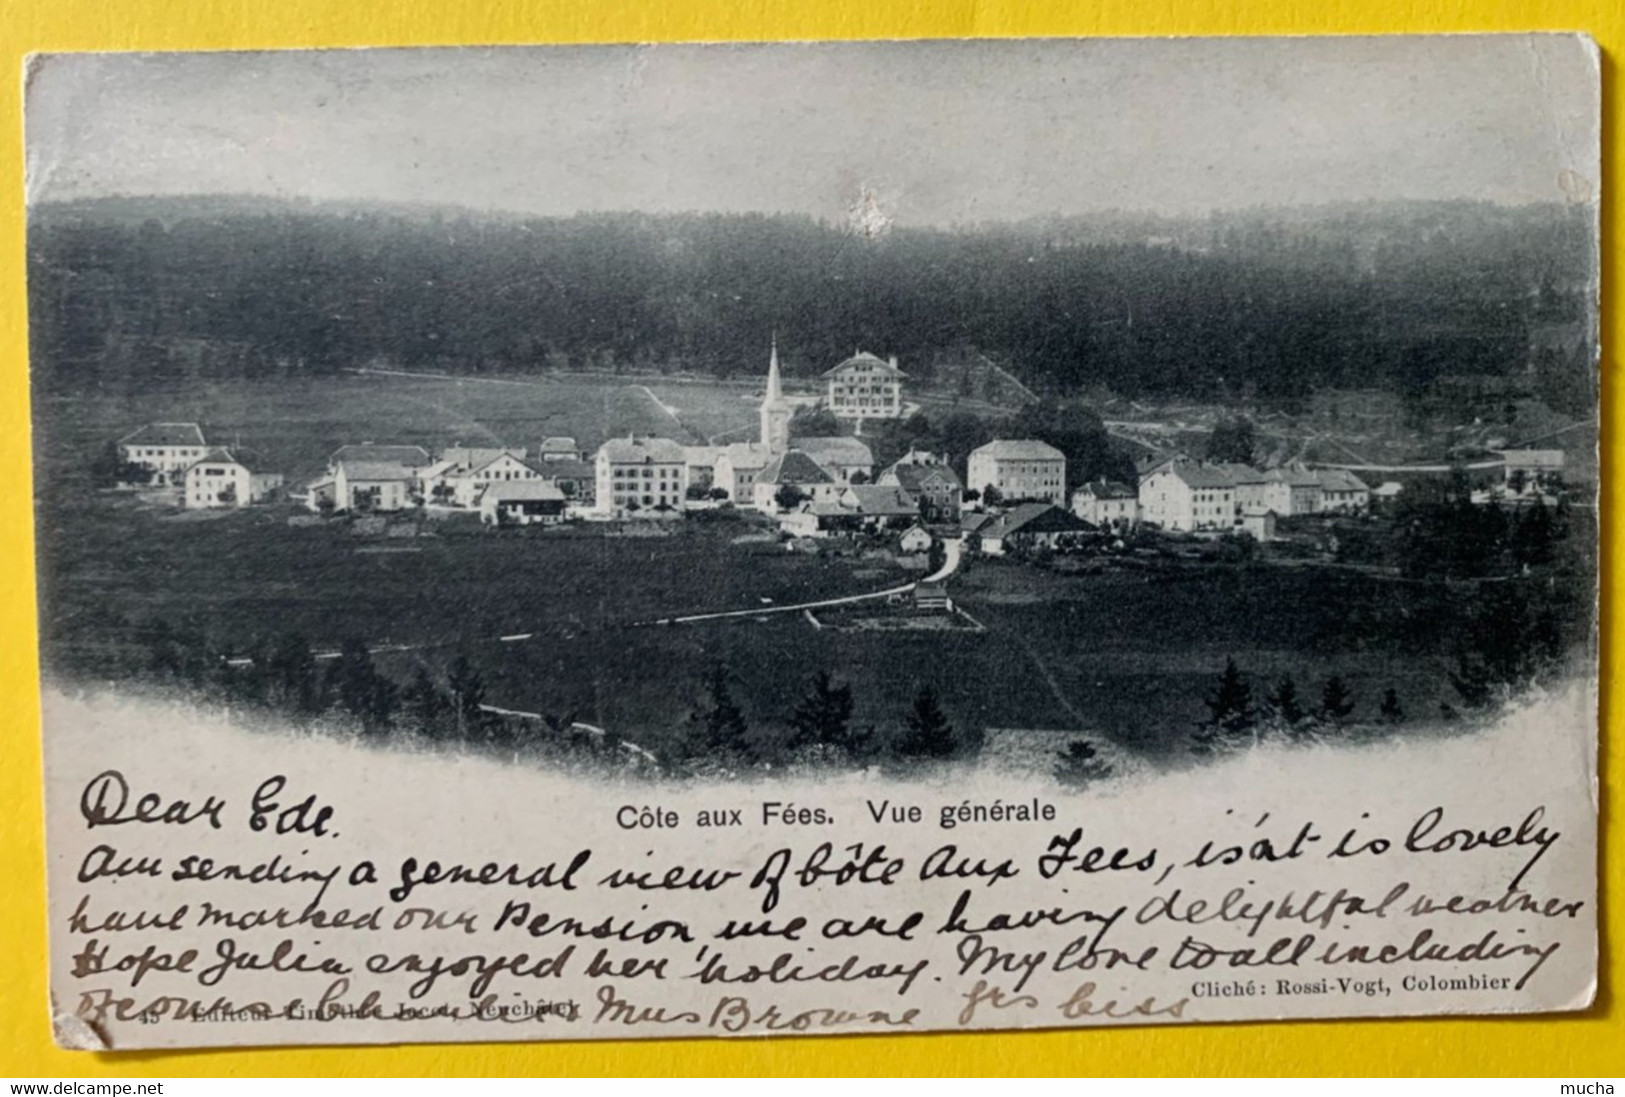 Côte aux Fées. Vue générale
Dear Ede.
Am sending a general view of Côte Aux Fees, is'nt is lovely
have marked our Pension, we are having delightful weather
Hope Julia enjoyed her holiday. My love to all including
Cliché: Rossi-Vogt, Colombier
45 Editeur Timothée Jacot, Neuchâtel
Browne
www.delcampe.net
mucha